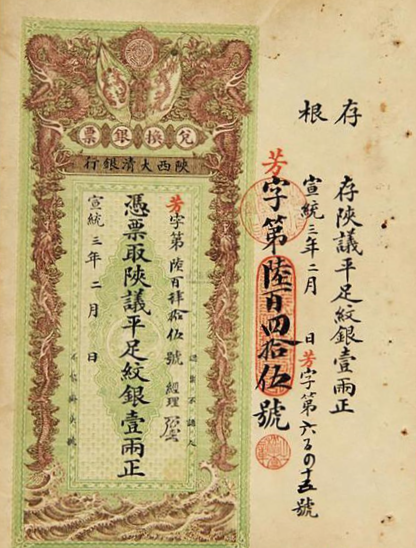 存根
存陝議平足紋銀壹兩正
宣統三年二月 日芳字第六百四十五號
芳字第陸百四拾伍號
兌換銀票
陝西大清銀行
認票不認人
芳字第陸百肆拾伍號 經理
憑票取陝議平足紋銀壹兩正
宣統三年二月 日